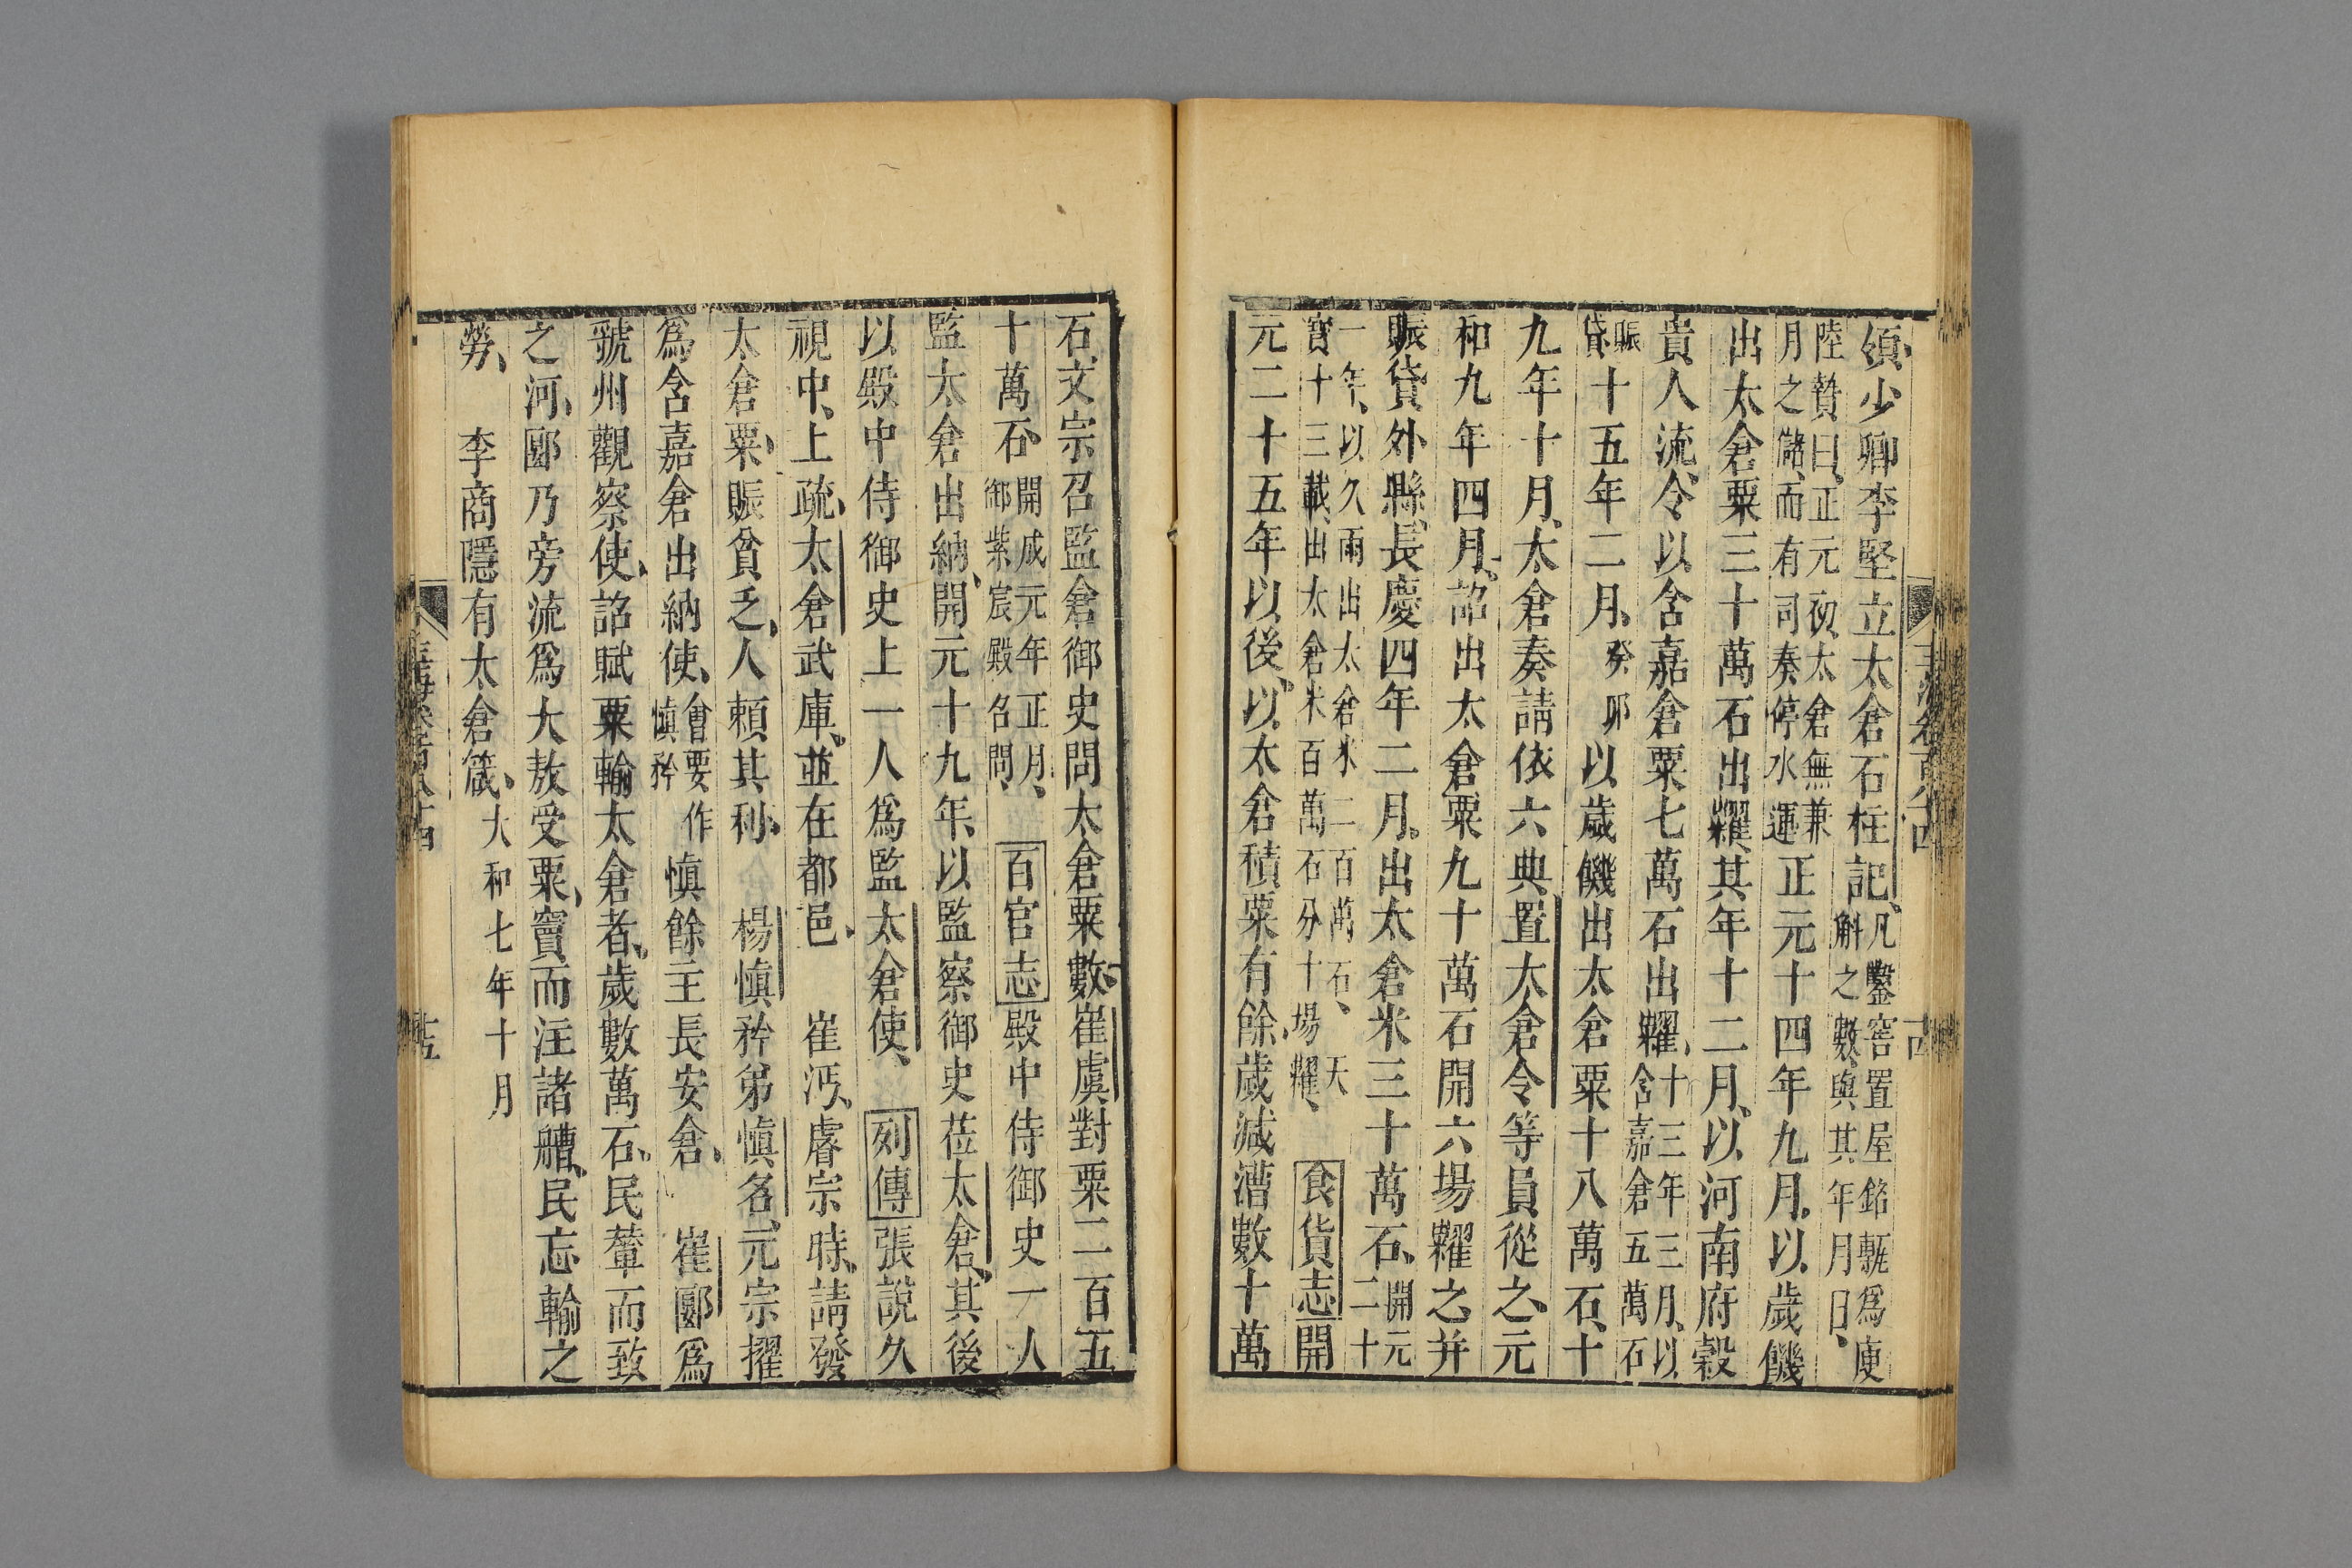 須、少卿李堅立太倉石柱記、凡鑿窖置屋銘甎爲庾
斛之數、與其年月日、
陸贄曰、正元初、太倉無兼
月之儲、而有司奏停水運正元十四年九月、以歲饑
出太倉粟三十萬石出糶、其年十二月、以河南府穀
貴人流、令以含嘉倉粟七萬石出糶、十三年三月、以
含嘉倉五萬石
賑
貸十五年二月、癸卯以歲饑出太倉粟十八萬石、十
九年十月、太倉奏請依六典置太倉令等員從之、元
和九年四月、詔出太倉粟九十萬石開六場糶之、并
賑貸外縣、長慶四年二月、出太倉米三十萬石、開元
二十
一年、以久雨出太倉米二百萬石、天
寶十三載、出太倉米百萬石分十場糶、食貨志開
元二十五年以後、以太倉積粟有餘、歲減漕數十萬
石、文宗召監倉御史問太倉粟數、崔虞對粟二百五
十萬石、開成元年正月、
御紫宸殿名問、百官志殿中侍御史一人
監太倉出納、開元十九年、以監察御史莅太倉、其後
以殿中侍御史上一人爲監太倉使、列傳張說久
視中、上疏、太倉武庫、並在都邑、崔沔、睿宗時、請發
太倉粟、賑貧乏、人賴其利、楊慎矜弟慎名、元宗擢
爲含嘉倉出納使、會要作
慎矜慎餘主長安倉、崔郾爲
虢州觀察使、詔賦粟輸太倉者、歲數萬石、民輦而致
之河、郾乃旁流爲大敖受粟、竇而注諸艚、民忘輸之
勞、李商隱有太倉箴、大和七年十月